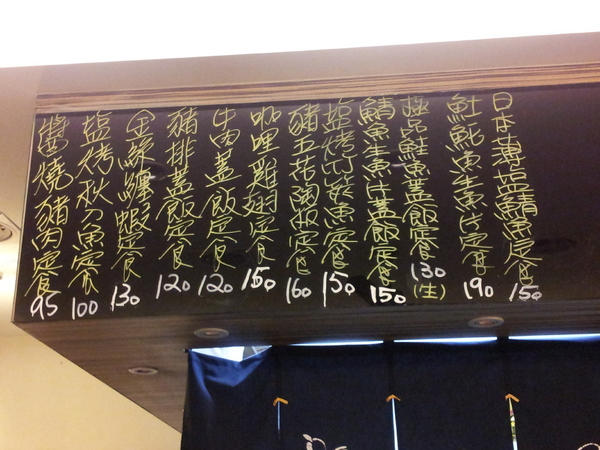 日本薄塩鯖魚定食
150
魠鮀魚生魚片定食
190
極品鮭魚蓋飯定食
130
(生)
鯖魚生魚片蓋飯定食
150
塩烤竹筴魚定食
150
豬五花陶板定食
160
咖哩雞翅定食
150
牛肉蓋飯定食
120
豬排蓋飯定食
120
金絲纏蝦定食
130
塩烤秋刀魚定食
100
醬燒豬肉定食
95